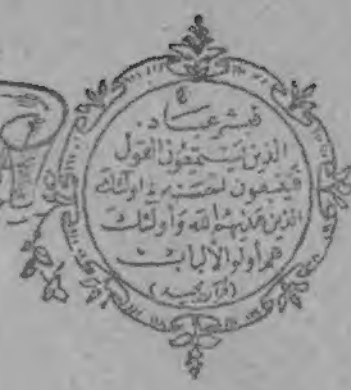 فبشر عباد
الذين يستمعون القول
فيتبعون احسنه اولئك
الذين هديهم الله وأولئك
هم أولو الألباب